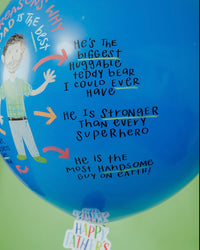 REASONS WHY
DAD IS THE BEST
HE'S THE
BIGGEST
HUGGABLE
TEDDY BEAR
I COULD EVER
HAVE
HE IS STRONGER
THAN EVERY
SUPERHERO
HE IS THE
MOST HANDSOME
GUY ON EARTH!
HAPPY
FATHER'S